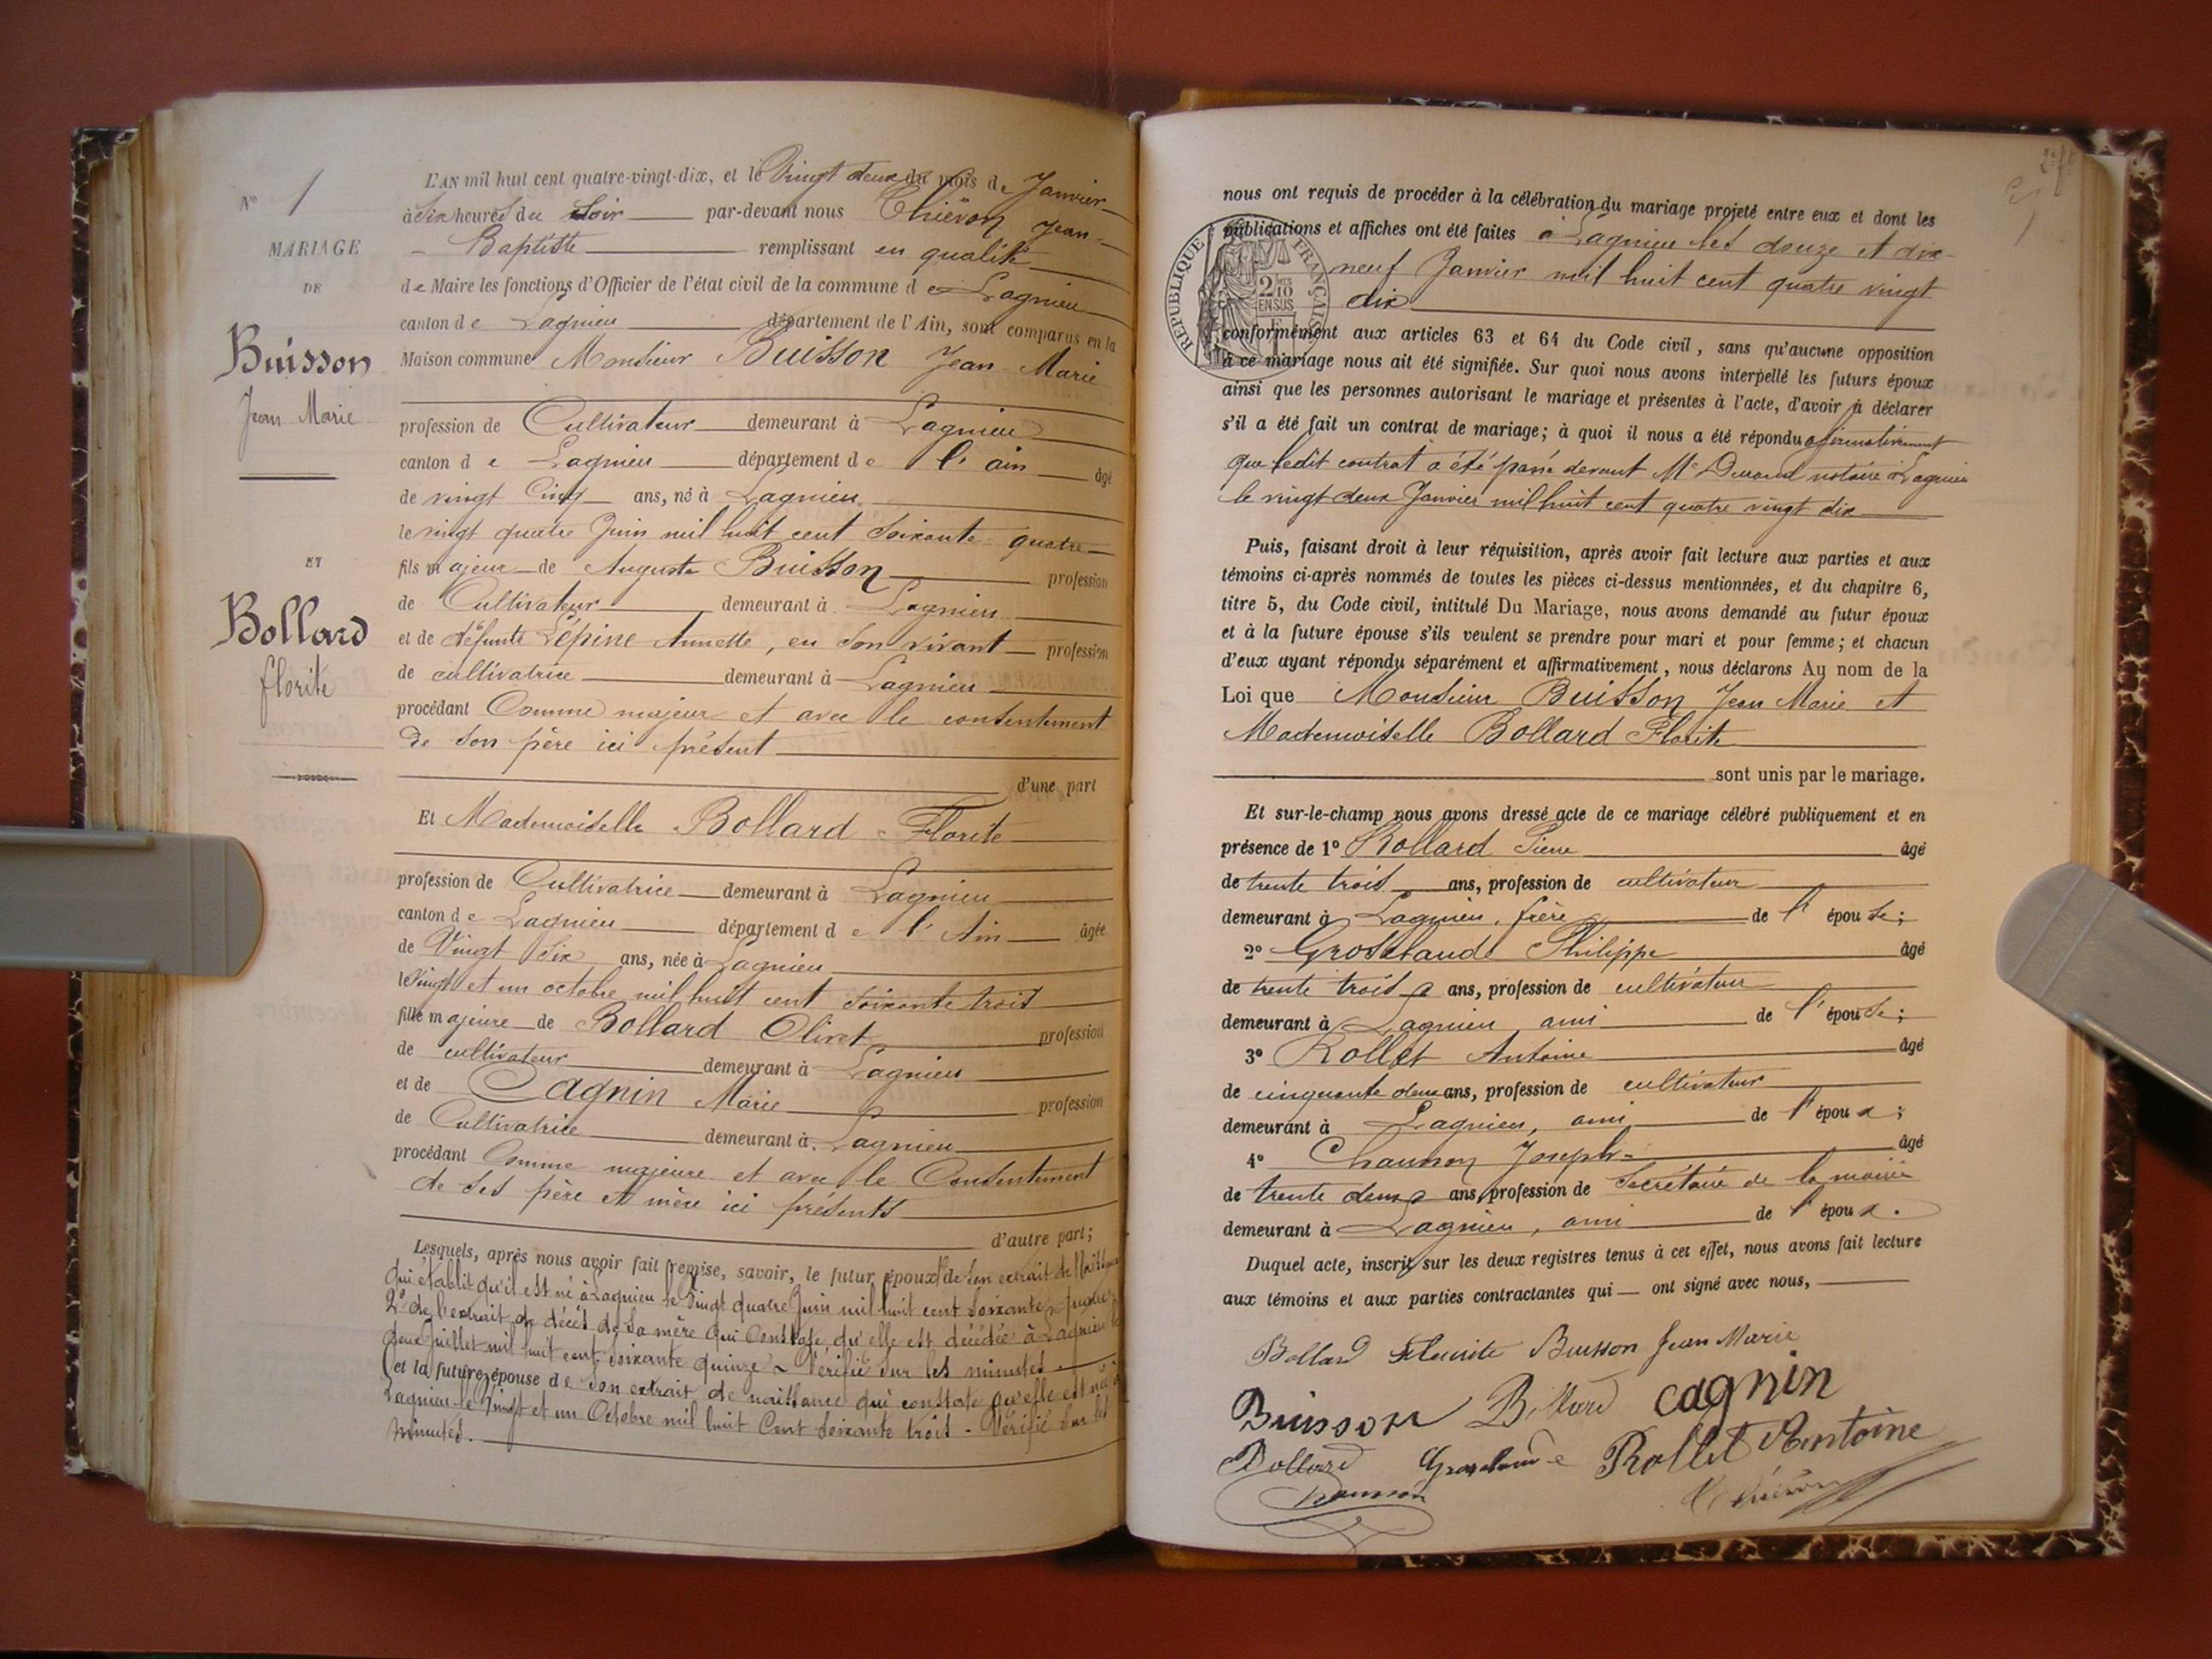 N° 1
MARIAGE
DE
Buisson
Jean Marie
ET
Bollard
florite
L'AN mil huit cent quatre-vingt-dix, et le Vingt deux du mois de Janvier
à Six heures du Soir par-devant nous Thiévon Jean-
- Baptiste remplissant en qualité
de Maire les fonctions d'Officier de l'état civil de la commune de Lagnieu
canton de Lagnieu département de l'Ain, sont comparus en la
Maison commune Monsieur Buisson Jean Marie
profession de Cultivateur demeurant à Lagnieu
canton de Lagnieu département de l'ain âgé
de vingt Cinq ans, né à Lagnieu
le vingt quatre Juin mil huit cent soixante quatre
fils majeur de Auguste Buisson profession
de Cultivateur demeurant à Lagnieu
et de défunte Lépine Annette, en son vivant profession
de cultivatrice demeurant à Lagnieu
procédant Comme majeur et avec le consentement
de son père ici présent
d'une part
Et Mademoiselle Bollard Florite
profession de Cultivatrice demeurant à Lagnieu
canton de Lagnieu département de l'Ain âgée
de Vingt Six ans, née à Lagnieu
le Vingt et un octobre mil huit cent soixante trois
fille majeure de Bollard Olivet profession
de cultivateur demeurant à Lagnieu
et de Cagnin Marie profession
de Cultivatrice demeurant à Lagnieu
procédant Comme majeure et avec le Consentement
de ses père et mère ici présents
d'autre part;
Lesquels, après nous avoir fait remise, savoir, le futur époux 1° de son extrait de
qui établit qu'il est né à Lagnieu le vingt quatre Juin mil huit cent soixante quatre
2° de l'extrait de décès de sa mère qui constate qu'elle est décédée à Lagnieu le
deux Juillet mil huit cent soixante quinze - Vérifié sur les minutes.
et la future épouse de son extrait de naissance qui constate qu'elle est née à
Lagnieu le Vingt et un Octobre mil huit Cent soixante trois - Vérifié sur les
minutes.
2e ft
nous ont requis de procéder à la célébration du mariage projeté entre eux et dont les
publications et affiches ont été faites à Lagnieu les douze et dix-
neuf Janvier mil huit cent quatre vingt
dix
RÉPUBLIQUE FRANÇAISE
2/10 EN SUS
conformément aux articles 63 et 64 du Code civil, sans qu'aucune opposition
à ce mariage nous ait été signifiée. Sur quoi nous avons interpellé les futurs époux
ainsi que les personnes autorisant le mariage et présentes à l'acte, d'avoir à déclarer
s'il a été fait un contrat de mariage; à quoi il nous a été répondu affirmativement
que ledit contrat a été passé devant Me Durand notaire à Lagnieu
le vingt deux Janvier mil huit cent quatre vingt dix
Puis, faisant droit à leur réquisition, après avoir fait lecture aux parties et aux
témoins ci-après nommés de toutes les pièces ci-dessus mentionnées, et du chapitre 6,
titre 5, du Code civil, intitulé Du Mariage, nous avons demandé au futur époux
et à la future épouse s'ils veulent se prendre pour mari et pour femme; et chacun
d'eux ayant répondu séparément et affirmativement, nous déclarons Au nom de la
Loi que Monsieur Buisson Jean Marie et
Mademoiselle Bollard Florite
sont unis par le mariage.
Et sur-le-champ nous avons dressé acte de ce mariage célébré publiquement et en
présence de 1° Bollard Pierre âgé
de trente trois ans, profession de cultivateur
demeurant à Lagnieu, frère de l'épouse;
2° Groslaude Philippe âgé
de trente trois ans, profession de cultivateur
demeurant à Lagnieu ami de l'épouse;
3° Rollet Antoine âgé
de cinquante deux ans, profession de cultivateur
demeurant à Lagnieu, ami de l'époux;
4° Chaumon Joseph âgé
de trente deux ans, profession de Secrétaire de la mairie
demeurant à Lagnieu, ami de l'époux.
Duquel acte, inscrit sur les deux registres tenus à cet effet, nous avons fait lecture
aux témoins et aux parties contractantes qui ont signé avec nous,
Bollard Fleurite Buisson Jean Marie
Buisson Bollard cagnin
Bollard Groslaude Rollet Antoine